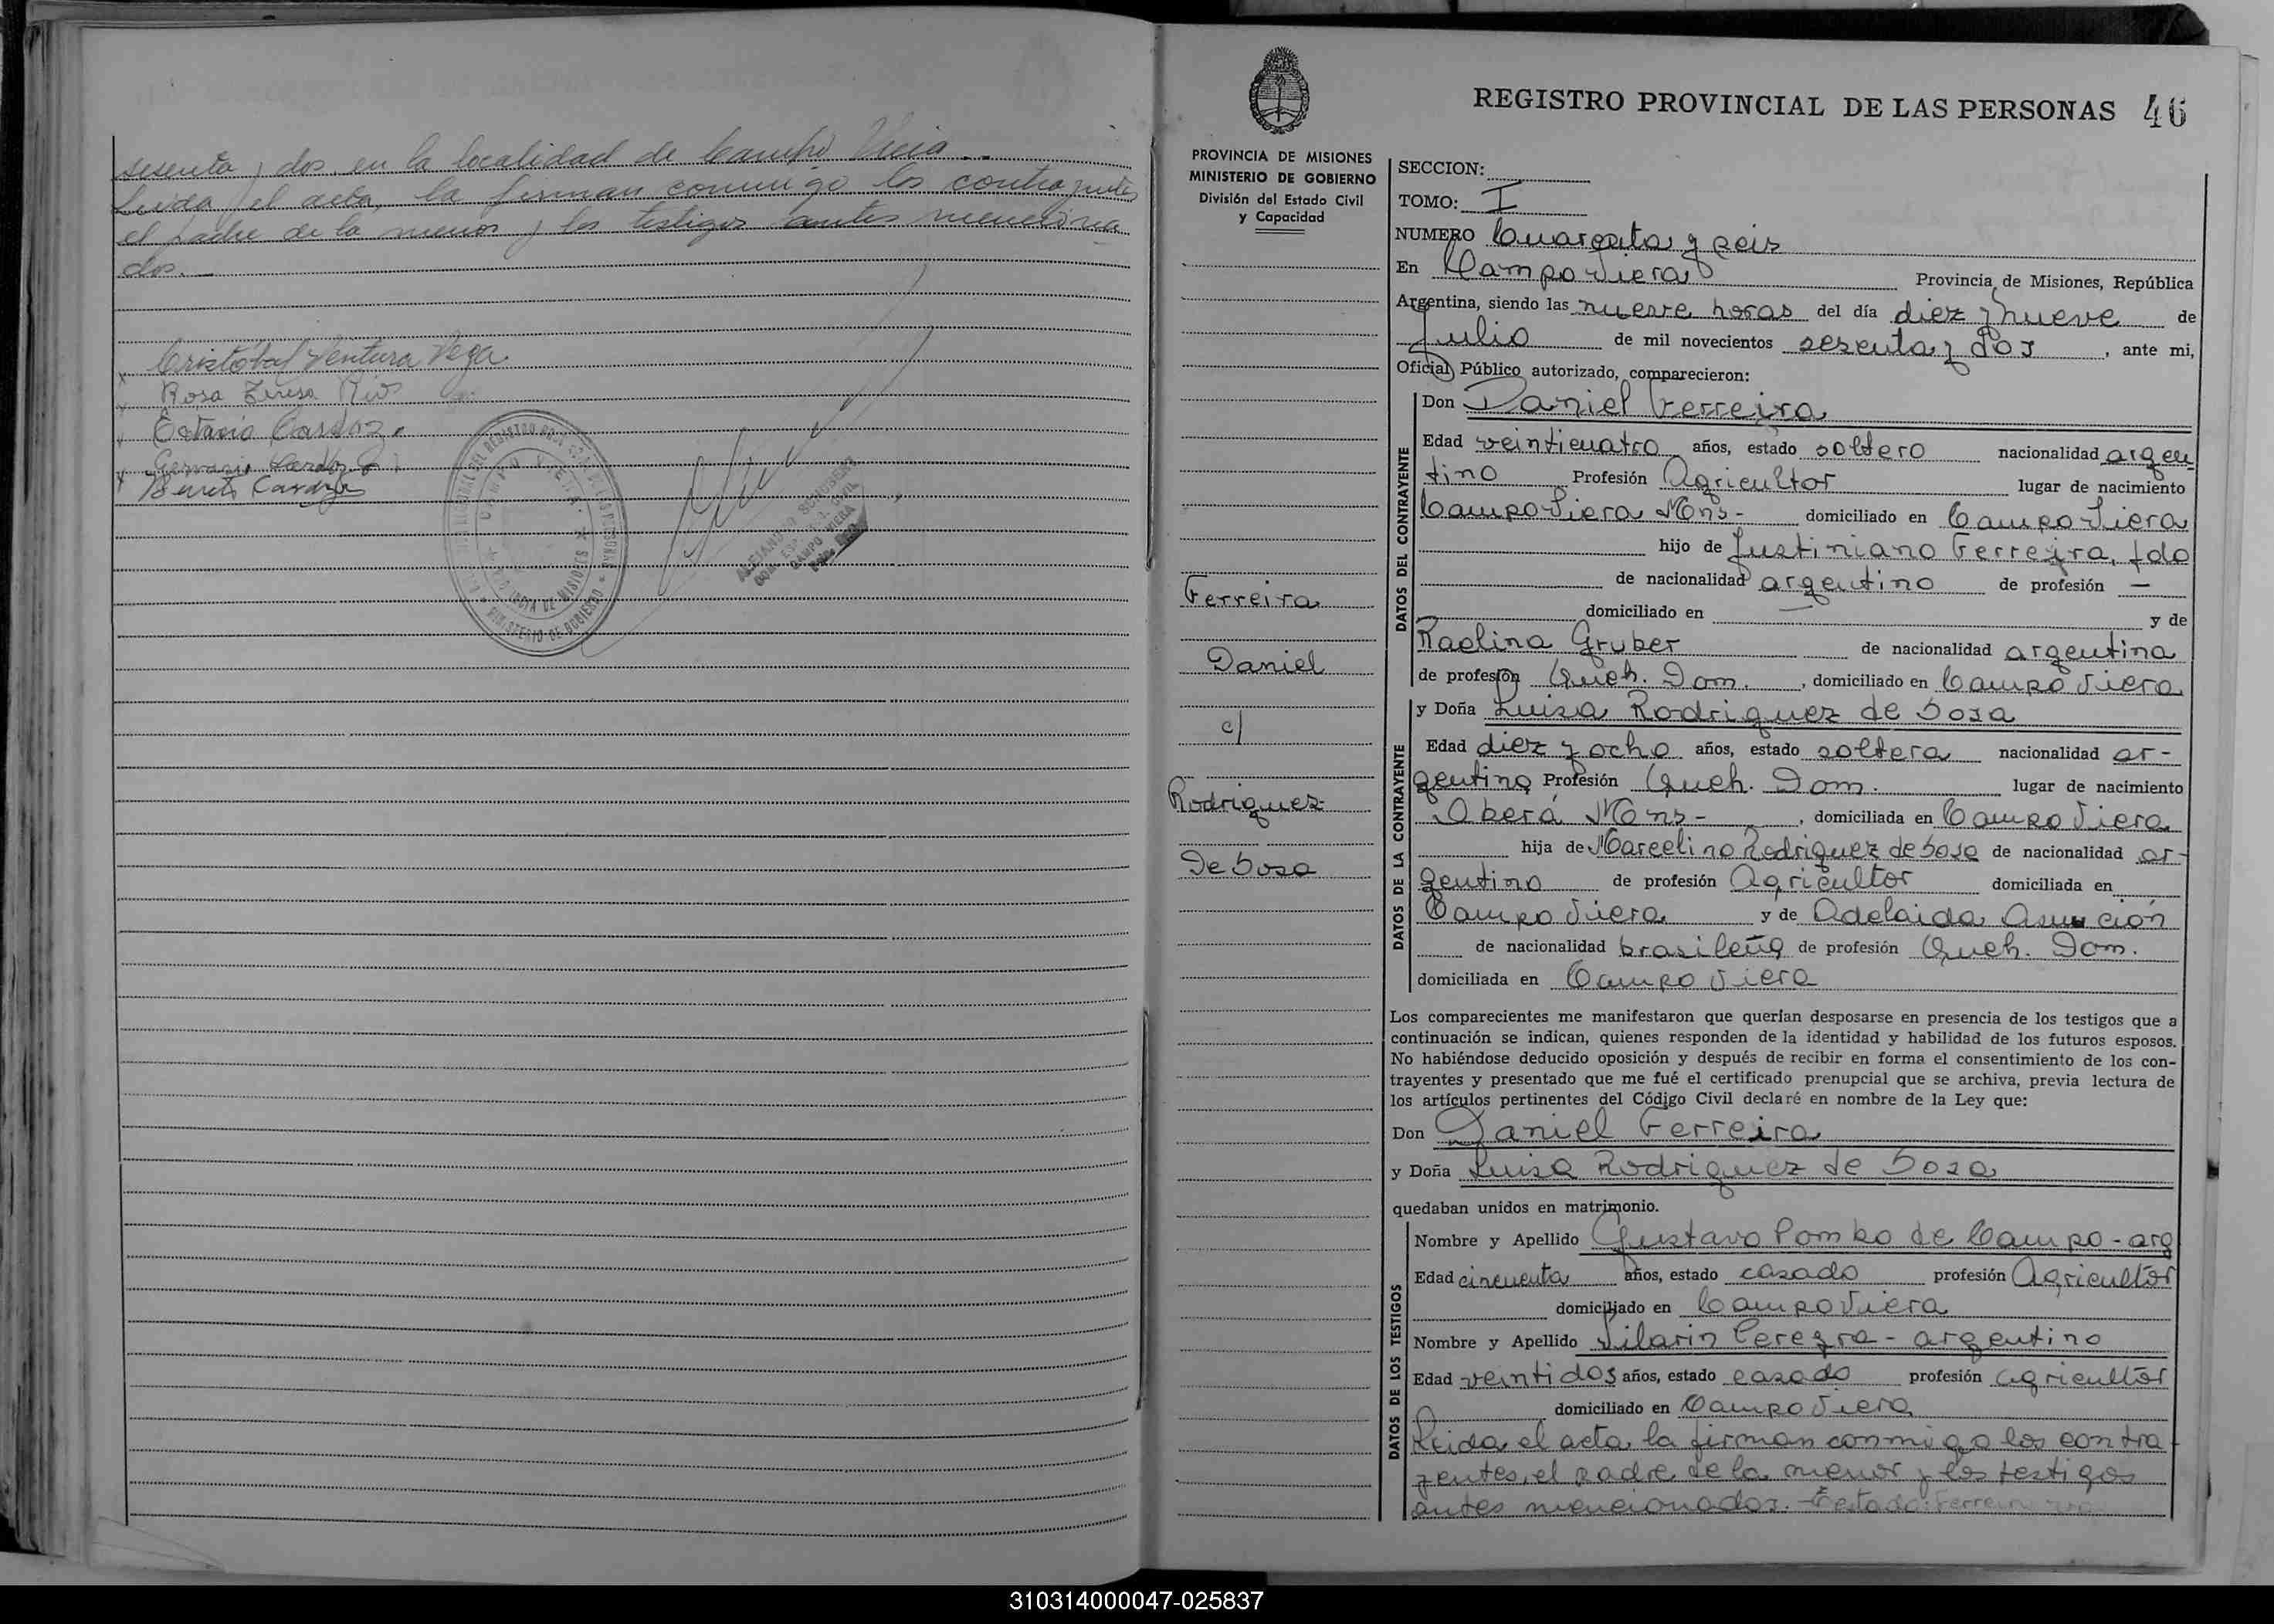 sesenta y dos en la localidad de Campo Viera.--
Leida el acta, la firman conmigo los contrayentes
el padre de la menor y los testigos antes menciona
dos.
Cristóbal Ventura Vega
Rosa Teresa Rios
Octavio Cardozo
REGISTRO PROVINCIAL DE LAS PERSONAS 46
PROVINCIA DE MISIONES
MINISTERIO DE GOBIERNO
División del Estado Civil
y Capacidad
Ferreira
Daniel
c/
Rodriguez
De Sosa
SECCION:
TOMO: I
NUMERO Cuarenta y seis
En Campo Viera Provincia de Misiones, República
Argentina, siendo las nueve horas del día diez y nueve de
Julio de mil novecientos sesenta y dos, ante mi,
Oficial Público autorizado, comparecieron:
DATOS DEL CONTRAYENTE
Don Daniel Ferreira
Edad veinticuatro años, estado soltero nacionalidad argen
tino Profesión Agricultor lugar de nacimiento
Campo Viera Mns- domiciliado en Campo Viera
hijo de Justiniano Ferreira, fdo
de nacionalidad argentino de profesión —
domiciliado en — y de
Raolina Gruber de nacionalidad argentina
de profesión Queh. Dom., domiciliado en Campo Viera
DATOS DE LA CONTRAYENTE
y Doña Luisa Rodriguez de Sosa
Edad diez y ocho años, estado soltera nacionalidad ar-
gentina Profesión Queh. Dom. lugar de nacimiento
Oberá Mns-, domiciliada en Campo Viera
hija de Marcelino Rodriguez de Sosa de nacionalidad ar-
gentino de profesión Agricultor domiciliada en
Campo Viera y de Adelaida Asunción
de nacionalidad brasileña de profesión Queh. Dom.
domiciliada en Campo Viera
Los comparecientes me manifestaron que querían desposarse en presencia de los testigos que a
continuación se indican, quienes responden de la identidad y habilidad de los futuros esposos.
No habiéndose deducido oposición y después de recibir en forma el consentimiento de los con-
trayentes y presentado que me fué el certificado prenupcial que se archiva, previa lectura de
los artículos pertinentes del Código Civil declaré en nombre de la Ley que:
Don Daniel Ferreira
y Doña Luisa Rodriguez de Sosa
quedaban unidos en matrimonio.
DATOS DE LOS TESTIGOS
Nombre y Apellido Gustavo Pombo de Campo - arg
Edad cincuenta años, estado casado profesión Agricultor
domiciliado en Campo Viera
Nombre y Apellido Pereyra - argentino
Edad veintidos años, estado casado profesión agricultor
domiciliado en Campo Viera
Leida el acta, la firman conmigo los contra
yentes, el padre de la menor y los testigos
antes mencionados. - Ferreira
310314000047-025837